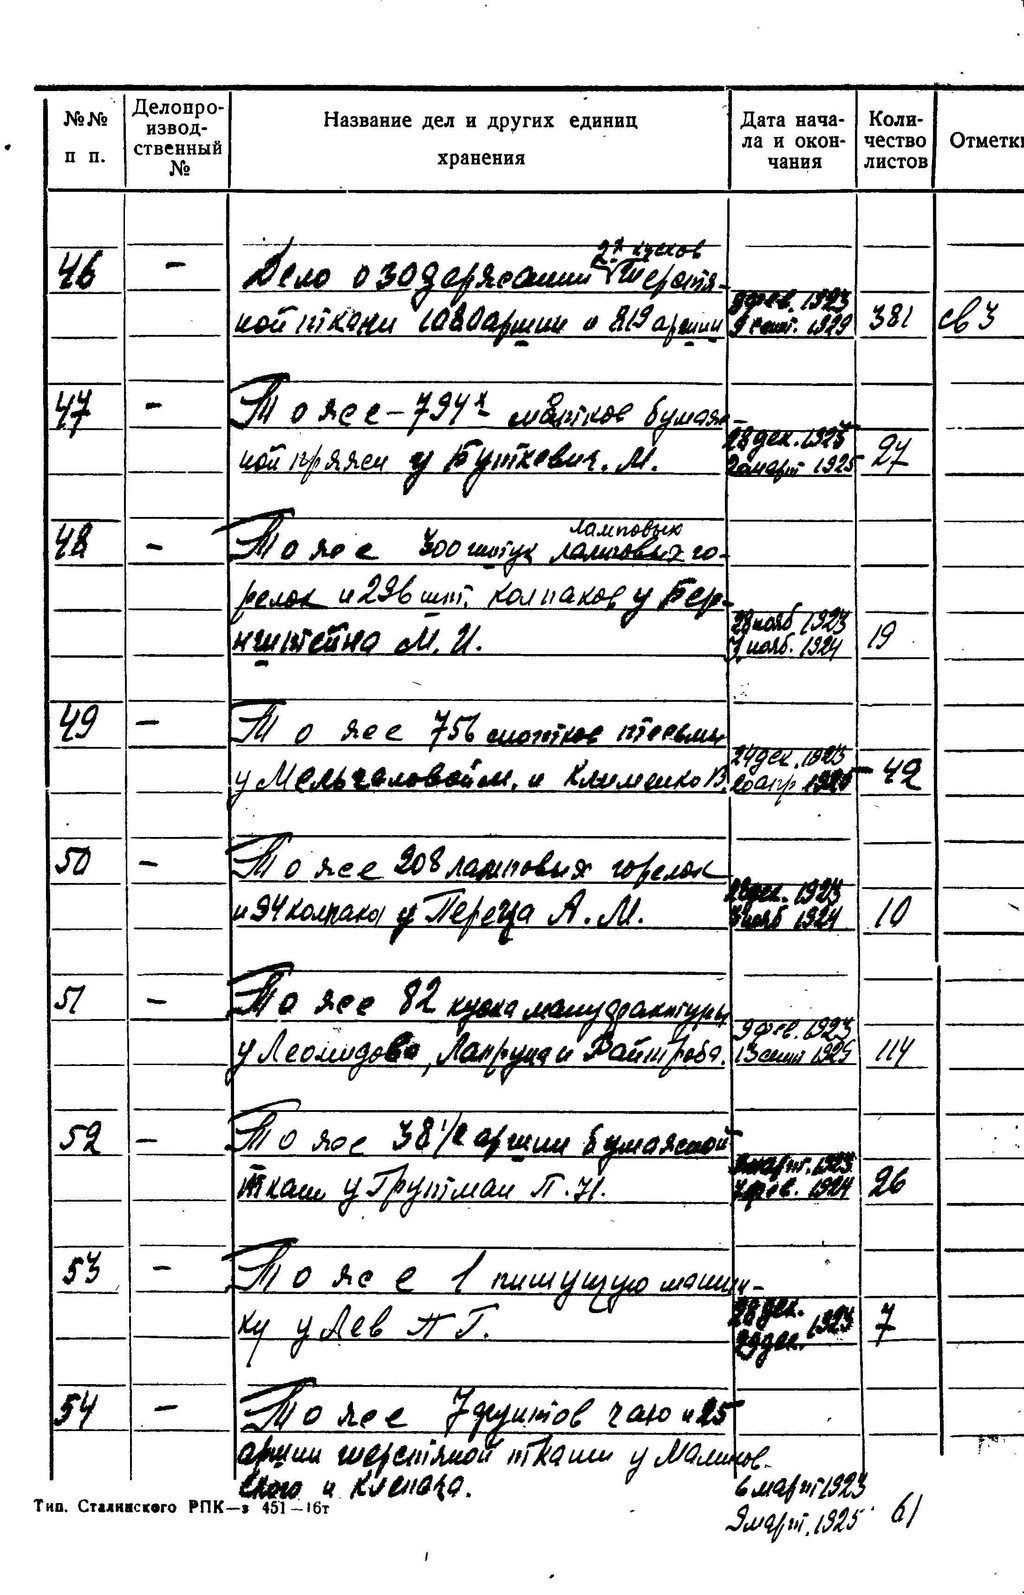 №№ п п.
Делопроизвод-
ственный №
Название дел и других единиц
хранения
Дата нача-
ла и окон-
чания
Коли-
чество
листов
Отметки
2х кусков
46 - Дело о задержании шерстя-
ной ткани 1080 аршин и 819 аршин
9 фев. 1923
9 сент. 1929
381
св 3
47 - То же - 794х мотков бумаж-
ной пряжи у Буткевич. М.
28 дек. 1923
20 март 1925
27
ламповых
48 - То же 300 штук ламповых го-
релок и 296 шт. колпаков у Бер-
нштейна М. И.
28 нояб 1923
7 нояб. 1924
19
49 - То же 756 мотков тесьмы
у и Клименко В.
24 дек. 1923
20 апр 1925
42
50 - То же 208 ламповых горелок
и 94 колпака у Переца А. М.
28 дек. 1923
3 нояб 1924
10
51 - То же 82 куска мануфактуры
у Леонидова, Лапруна и Файнтроба.
9 фев. 1923
13 1925
114
52 - То же 38 1/2 аршин бумажной
ткани у Грутман П. И.
март. 1923
7 фев. 1924
26
53 - То же 1 пишущую машин-
ку у Лев П Г.
28 дек.
29 дек. 1923
7
54 - То же 7 фунтов чаю и 25
аршин шерстяной ткани у Малинов-
ского и
6 март 1923
9 март. 1925
61
Тип. Сталинского РПК—з 451—16т